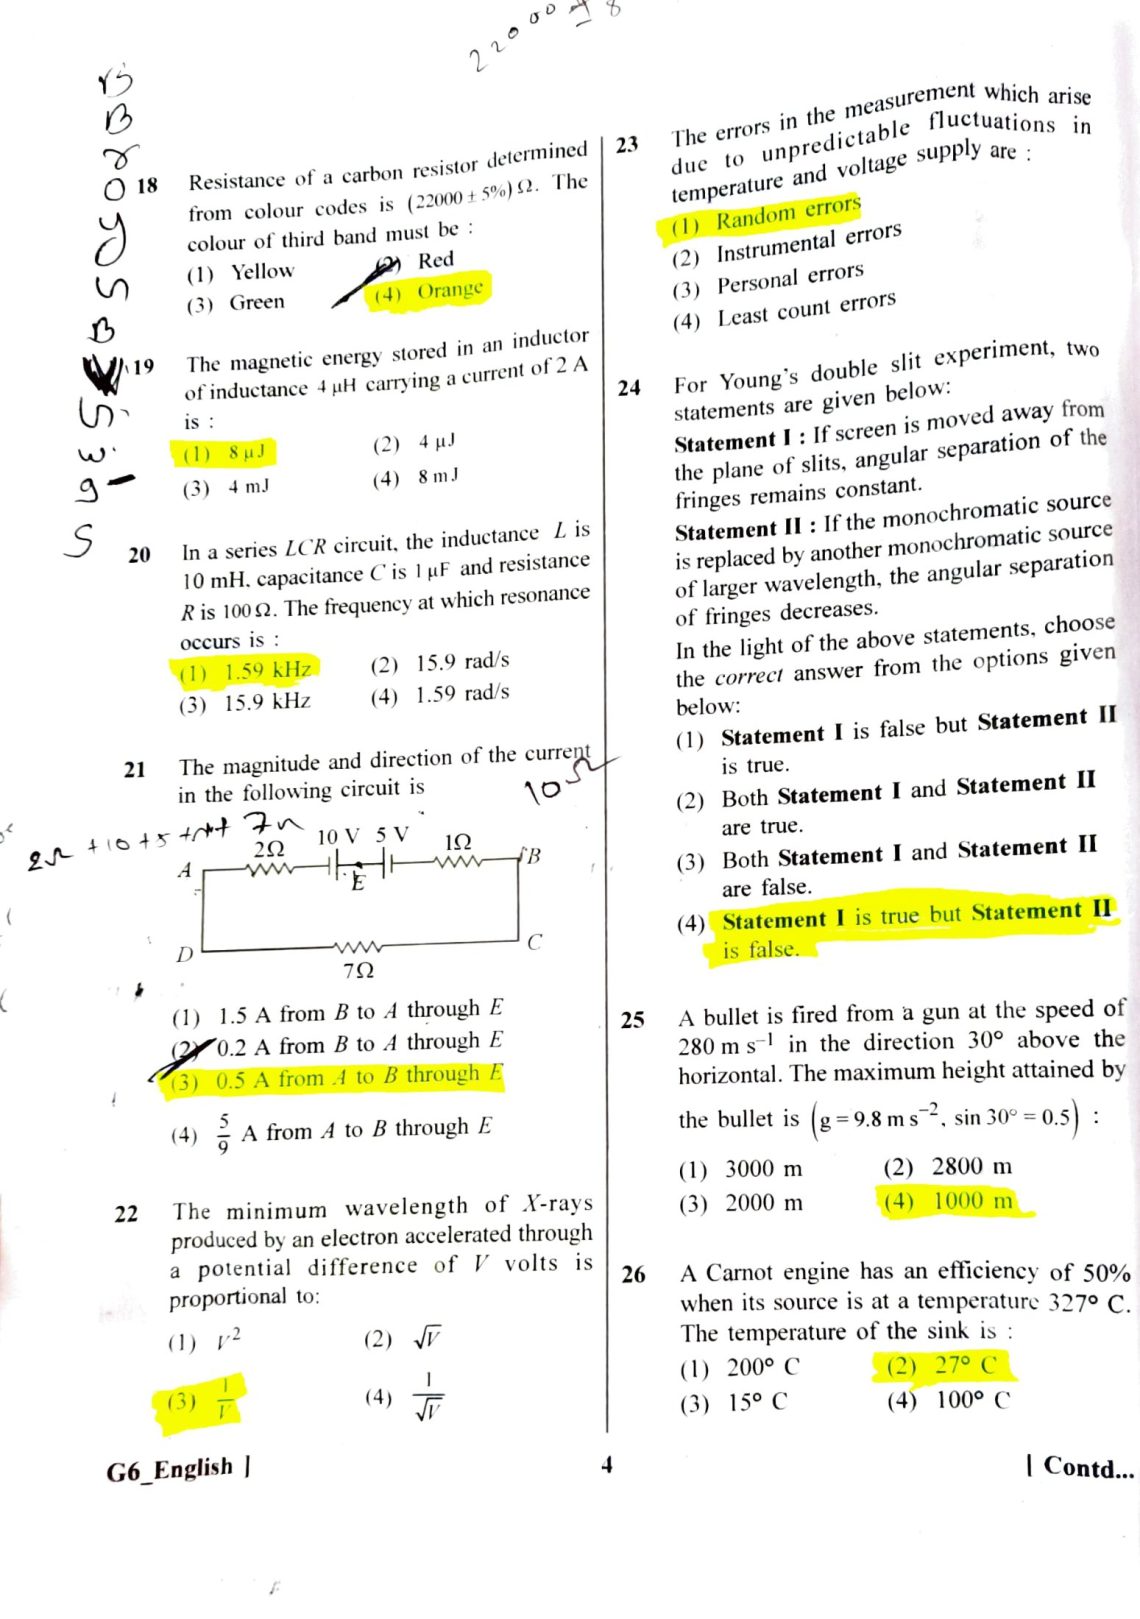 22000
B B R O Y G B V G W
18 Resistance of a carbon resistor determined
from colour codes is (22000 ± 5%) Ω. The
colour of third band must be :
(1) Yellow (2) Red
(3) Green (4) Orange
19 The magnetic energy stored in an inductor
of inductance 4 μH carrying a current of 2 A
is :
(1) 8 μJ (2) 4 μJ
(3) 4 mJ (4) 8 mJ
20 In a series LCR circuit, the inductance L is
10 mH, capacitance C is 1 μF and resistance
R is 100 Ω. The frequency at which resonance
occurs is :
(1) 1.59 kHz (2) 15.9 rad/s
(3) 15.9 kHz (4) 1.59 rad/s
21 The magnitude and direction of the current
in the following circuit is
10Ω
2Ω + 10 + 5 + 7Ω
10 V 5 V
2Ω 1Ω
A E B
D C
7Ω
(1) 1.5 A from B to A through E
(2) 0.2 A from B to A through E
(3) 0.5 A from A to B through E
(4) 5/9 A from A to B through E
22 The minimum wavelength of X-rays
produced by an electron accelerated through
a potential difference of V volts is
proportional to:
(1) V² (2) √V
(3) 1/V (4) 1/√V
23 The errors in the measurement which arise
due to unpredictable fluctuations in
temperature and voltage supply are :
(1) Random errors
(2) Instrumental errors
(3) Personal errors
(4) Least count errors
24 For Young's double slit experiment, two
statements are given below:
Statement I : If screen is moved away from
the plane of slits, angular separation of the
fringes remains constant.
Statement II : If the monochromatic source
is replaced by another monochromatic source
of larger wavelength, the angular separation
of fringes decreases.
In the light of the above statements, choose
the correct answer from the options given
below:
(1) Statement I is false but Statement II
is true.
(2) Both Statement I and Statement II
are true.
(3) Both Statement I and Statement II
are false.
(4) Statement I is true but Statement II
is false.
25 A bullet is fired from a gun at the speed of
280 m s⁻¹ in the direction 30° above the
horizontal. The maximum height attained by
the bullet is (g = 9.8 m s⁻², sin 30° = 0.5) :
(1) 3000 m (2) 2800 m
(3) 2000 m (4) 1000 m
26 A Carnot engine has an efficiency of 50%
when its source is at a temperature 327° C.
The temperature of the sink is :
(1) 200° C (2) 27° C
(3) 15° C (4) 100° C
G6_English ]
4
[ Contd...